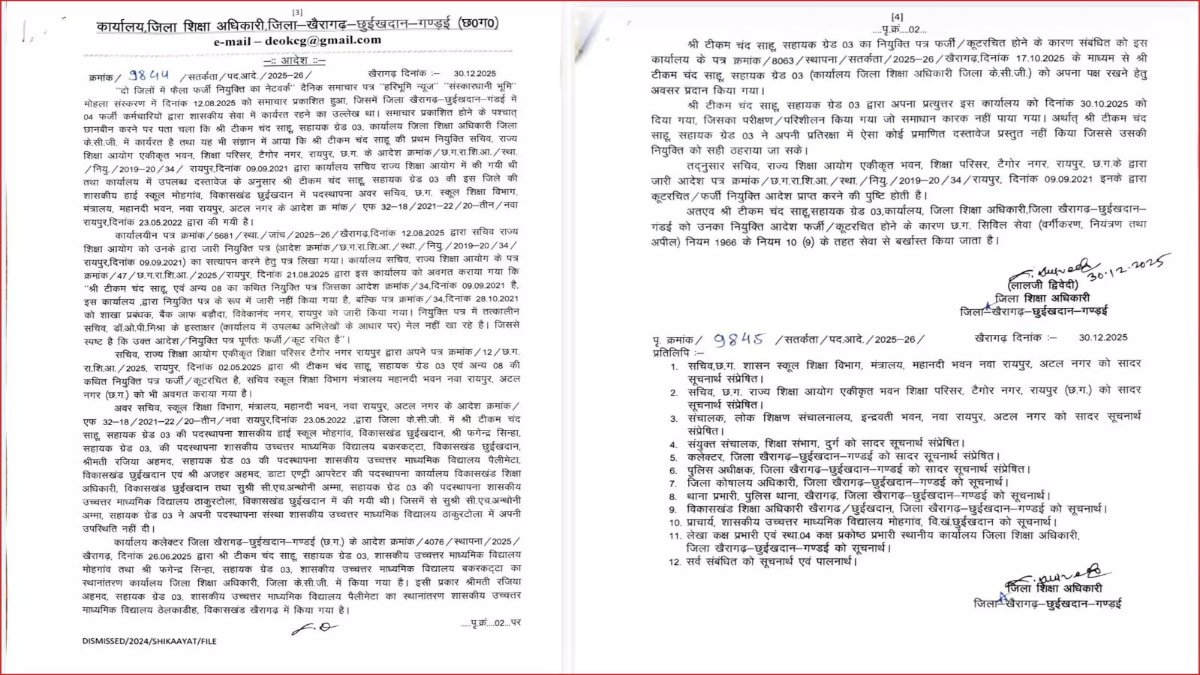 [3]
कार्यालय,जिला शिक्षा अधिकारी,जिला-खैरागढ़-छुईखदान-गण्डई (छ0ग0)
e-mail – deokcg@gmail.com
-:: आदेश ::-
क्रमांक/ 9844 /सतर्कता/पद.आदे./2025-26/ खैरागढ़ दिनांक :- 30.12.2025
"दो जिलों में फैला फर्जी नियुक्ति का नेटवर्क" दैनिक समाचार पत्र "हरिभूमि न्यूज" "संस्कारधानी भूमि"
मोहला संस्करण में दिनांक 12.08.2025 को समाचार प्रकाशित हुआ, जिसमें जिला खैरागढ़-छुईखदान-गंडई में
04 फर्जी कर्मचारियों द्वारा शासकीय सेवा में कार्यरत रहने का उल्लेख था। समाचार प्रकाशित होने के पश्चात्
छानबीन करने पर पता चला कि श्री टीकम चंद साहू, सहायक ग्रेड 03, कार्यालय जिला शिक्षा अधिकारी जिला
के.सी.जी. में कार्यरत है तथा यह भी संज्ञान में आया कि श्री टीकम चंद साहू की प्रथम नियुक्ति सचिव, राज्य
शिक्षा आयोग एकीकृत भवन, शिक्षा परिसर, टैगोर नगर, रायपुर, छ.ग. के आदेश क्रमांक/छ.ग.रा.शि.आ./स्था.
/नियु./2019-20/34/ रायपुर,दिनांक 09.09.2021 द्वारा कार्यालय सचिव राज्य शिक्षा आयोग में की गयी थी
तथा कार्यालय में उपलब्ध दस्तावेज के अनुसार श्री टीकम चंद साहू, सहायक ग्रेड 03 की इस जिले की
शासकीय हाई स्कूल मोहगांव, विकासखंड छुईखदान में पदस्थापना अवर सचिव, छ.ग. स्कूल शिक्षा विभाग,
मंत्रालय, महानदी भवन, नवा रायपुर, अटल नगर के आदेश क्र मांक/ एफ 32-18/2021-22/20-तीन/नवा
रायपुर,दिनांक 23.05.2022 द्वारा की गयी है।
कार्यालयीन पत्र क्रमांक/5681/स्था./जांच/2025-26/खैरागढ़,दिनांक 12.08.2025 द्वारा सचिव राज्य
शिक्षा आयोग को उनके द्वारा जारी नियुक्ति पत्र (आदेश क्रमांक/छ.ग.रा.शि.आ./स्था./नियु./2019-20/34/
रायपुर,दिनांक 09.09.2021) का सत्यापन करने हेतु पत्र लिखा गया। कार्यालय सचिव, राज्य शिक्षा आयोग के पत्र
क्रमांक/47/छ.ग.रा.शि.आ./2025/रायपुर, दिनांक 21.08.2025 द्वारा इस कार्यालय को अवगत कराया गया कि
"श्री टीकम चंद साहू एवं अन्य 08 का कथित नियुक्ति पत्र जिसका आदेश क्रमांक/34,दिनांक 09.09.2021 है,
इस कार्यालय ,द्वारा नियुक्ति पत्र के रूप में जारी नहीं किया गया है, बल्कि पत्र क्रमांक/34,दिनांक 28.10.2021
को शाखा प्रबंधक, बैंक आफ बड़ौदा, विवेकानंद नगर, रायपुर को जारी किया गया। नियुक्ति पत्र में तत्कालीन
सचिव, डॉ.ओ.पी.मिश्रा के हस्ताक्षर (कार्यालय में उपलब्ध अभिलेखों के आधार पर) मेल नहीं खा रहे है। जिससे
स्पष्ट है कि उक्त आदेश/नियुक्ति पत्र पूर्णतः फर्जी/कूट रचित है"।
सचिव, राज्य शिक्षा आयोग एकीकृत शिक्षा परिसर टैगोर नगर रायपुर द्वारा अपने पत्र क्रमांक/12/छ.ग.
रा.शि.आ./2025, रायपुर, दिनांक 02.05.2025 द्वारा श्री टीकम चंद साहू, सहायक ग्रेड 03 एवं अन्य 08 की
कथित नियुक्ति पत्र फर्जी/कूटरचित है, सचिव स्कूल शिक्षा विभाग मंत्रालय महानदी भवन नवा रायपुर, अटल
नगर (छ.ग.) को भी अवगत कराया गया है।
अवर सचिव, स्कूल शिक्षा विभाग, मंत्रालय, महानदी भवन, नवा रायपुर, अटल नगर के आदेश क्रमांक/
एफ 32-18/2021-22/20-तीन/नवा रायपुर,दिनांक 23.05.2022 ,द्वारा जिला के.सी.जी. में श्री टीकम चंद
साहू, सहायक ग्रेड 03 की पदस्थापना शासकीय हाई स्कूल मोहगांव, विकासखंड छुईखदान, श्री फगेन्द्र सिन्हा,
सहायक ग्रेड 03, की पदस्थापना शासकीय उच्चत्तर माध्यमिक विद्यालय बकरकट्टा, विकासखंड छुईखदान,
श्रीमती रजिया अहमद, सहायक ग्रेड 03 की पदस्थापना शासकीय उच्चत्तर माध्यमिक विद्यालय पैलीमेटा,
विकासखंड छुईखदान एवं श्री अजहर अहमद, डाटा एण्ट्री आपरेटर की पदस्थापना कार्यालय विकासखंड शिक्षा
अधिकारी, विकासखंड छुईखदान तथा सुश्री सी.एच.अन्थोनी अम्मा, सहायक ग्रेड 03 की पदस्थापना शासकीय
उच्चत्तर माध्यमिक विद्यालय ठाकुरटोला, विकासखंड छुईखदान में की गयी थी। जिसमें से सुश्री सी.एच.अन्थोनी
अम्मा, सहायक ग्रेड 03 ने अपनी पदस्थापना संस्था शासकीय उच्चत्तर माध्यमिक विद्यालय ठाकुरटोला में अपनी
उपस्थिति नहीं दी।
कार्यालय कलेक्टर जिला खैरागढ़-छुईखदान-गण्डई (छ.ग.) के आदेश क्रमांक/4076/स्थापना/2025/
खैरागढ़, दिनांक 26.06.2025 द्वारा श्री टीकम चंद साहू, सहायक ग्रेड 03, शासकीय उच्चत्तर माध्यमिक विद्यालय
मोहगांव तथा श्री फगेन्द्र सिन्हा, सहायक ग्रेड 03, शासकीय उच्चत्तर माध्यमिक विद्यालय बकरकट्टा का
स्थानांतरण कार्यालय जिला शिक्षा अधिकारी, जिला के.सी.जी. में किया गया है। इसी प्रकार श्रीमती रजिया
अहमद, सहायक ग्रेड 03, शासकीय उच्चत्तर माध्यमिक विद्यालय पैलीमेटा का स्थानंतरण शासकीय उच्चत्तर
माध्यमिक विद्यालय ठेलकाडीह, विकासखंड खैरागढ़ में किया गया है।
...पृ.क्रं...02...पर
DISMISSED/2024/SHIKAAYAT/FILE
[4]
....पृ.क्रं...02...
श्री टीकम चंद साहू, सहायक ग्रेड 03 का नियुक्ति पत्र फर्जी/कूटरचित होने के कारण संबधित को इस
कार्यालय के पत्र क्रमांक/8063/स्थापना/सतर्कता/2025-26/खैरागढ़,दिनांक 17.10.2025 के माध्यम से श्री
टीकम चंद साहू, सहायक ग्रेड 03 (कार्यालय जिला शिक्षा अधिकारी जिला के.सी.जी.) को अपना पक्ष रखने हेतु
अवसर प्रदान किया गया।
श्री टीकम चंद साहू, सहायक ग्रेड 03 द्वारा अपना प्रत्युत्तर इस कार्यालय को दिनांक 30.10.2025 को
दिया गया, जिसका परीक्षण/परिशीलन किया गया जो समाधान कारक नहीं पाया गया। अर्थात् श्री टीकम चंद
साहू, सहायक ग्रेड 03 ने अपनी प्रतिरक्षा में ऐसा कोई प्रमाणित दस्तावेज प्रस्तुत नहीं किया जिससे उसकी
नियुक्ति को सही ठहराया जा सके।
तद्नुसार सचिव, राज्य शिक्षा आयोग एकीकृत भवन, शिक्षा परिसर, टैगोर नगर, रायपुर, छ.ग.के द्वारा
जारी आदेश पत्र क्रमांक/छ.ग.रा.शि.आ./स्था./नियु./2019-20/34/रायपुर, दिनांक 09.09.2021 इनके द्वारा
कूटरचित/फर्जी नियुक्ति आदेश प्राप्त करने की पुष्टि होती है।
अतएव श्री टीकम चंद साहू,सहायक ग्रेड 03,कार्यालय, जिला शिक्षा अधिकारी,जिला खैरागढ़-छुईखदान-
गंडई को उनका नियुक्ति आदेश फर्जी/कूटरचित होने के कारण छ.ग. सिविल सेवा (वर्गीकरण, नियंत्रण तथा
अपील) नियम 1966 के नियम 10 (9) के तहत सेवा से बर्खास्त किया जाता है।
30.12.2025
(लालजी द्विवेदी)
जिला शिक्षा अधिकारी
जिला-खैरागढ़-छुईखदान-गण्डई
पृ. क्रमांक/ 9845 /सतर्कता/पद.आदे./2025-26/ खैरागढ़ दिनांक :- 30.12.2025
प्रतिलिपि :-
1. सचिव,छ.ग. शासन स्कूल शिक्षा विभाग, मंत्रालय, महानदी भवन नवा रायपुर, अटल नगर को सादर
सूचनार्थ संप्रेषित।
2. सचिव, छ.ग. राज्य शिक्षा आयोग एकीकृत भवन शिक्षा परिसर, टैगोर नगर, रायपुर (छ.ग.) को सादर
सूचनार्थ संप्रेषित।
3. संचालक, लोक शिक्षण संचालनालय, इन्द्रवती भवन, नवा रायपुर, अटल नगर को सादर सूचनार्थ
संप्रेषित।
4. संयुक्त संचालक, शिक्षा संभाग, दुर्ग को सादर सूचनार्थ संप्रेषित।
5. कलेक्टर, जिला खैरागढ़-छुईखदान-गण्डई को सादर सूचनार्थ संप्रेषित।
6. पुलिस अधीक्षक, जिला खैरागढ़-छुईखदान-गण्डई को सादर सूचनार्थ संप्रेषित।
7. जिला कोषालय अधिकारी, जिला खैरागढ़-छुईखदान-गण्डई को सूचनार्थ।
8. थाना प्रभारी, पुलिस थाना, खैरागढ़, जिला खैरागढ़-छुईखदान-गण्डई को सूचनार्थ।
9. विकासखण्ड शिक्षा अधिकारी खैरागढ़/छुईखदान, जिला खैरागढ़-छुईखदान-गण्डई को सूचनार्थ।
10. प्राचार्य, शासकीय उच्चत्तर माध्यमिक विद्यालय मोहगांव, वि.खं.छुईखदान को सूचनार्थ।
11. लेखा कक्ष प्रभारी एवं स्था.04 कक्ष प्रकोष्ठ प्रभारी स्थानीय कार्यालय जिला शिक्षा अधिकारी,
जिला खैरागढ़-छुईखदान-गण्डई को सूचनार्थ।
12. सर्व संबधित को सूचनार्थ एवं पालनार्थ।
जिला शिक्षा अधिकारी
जिला-खैरागढ़-छुईखदान-गण्डई